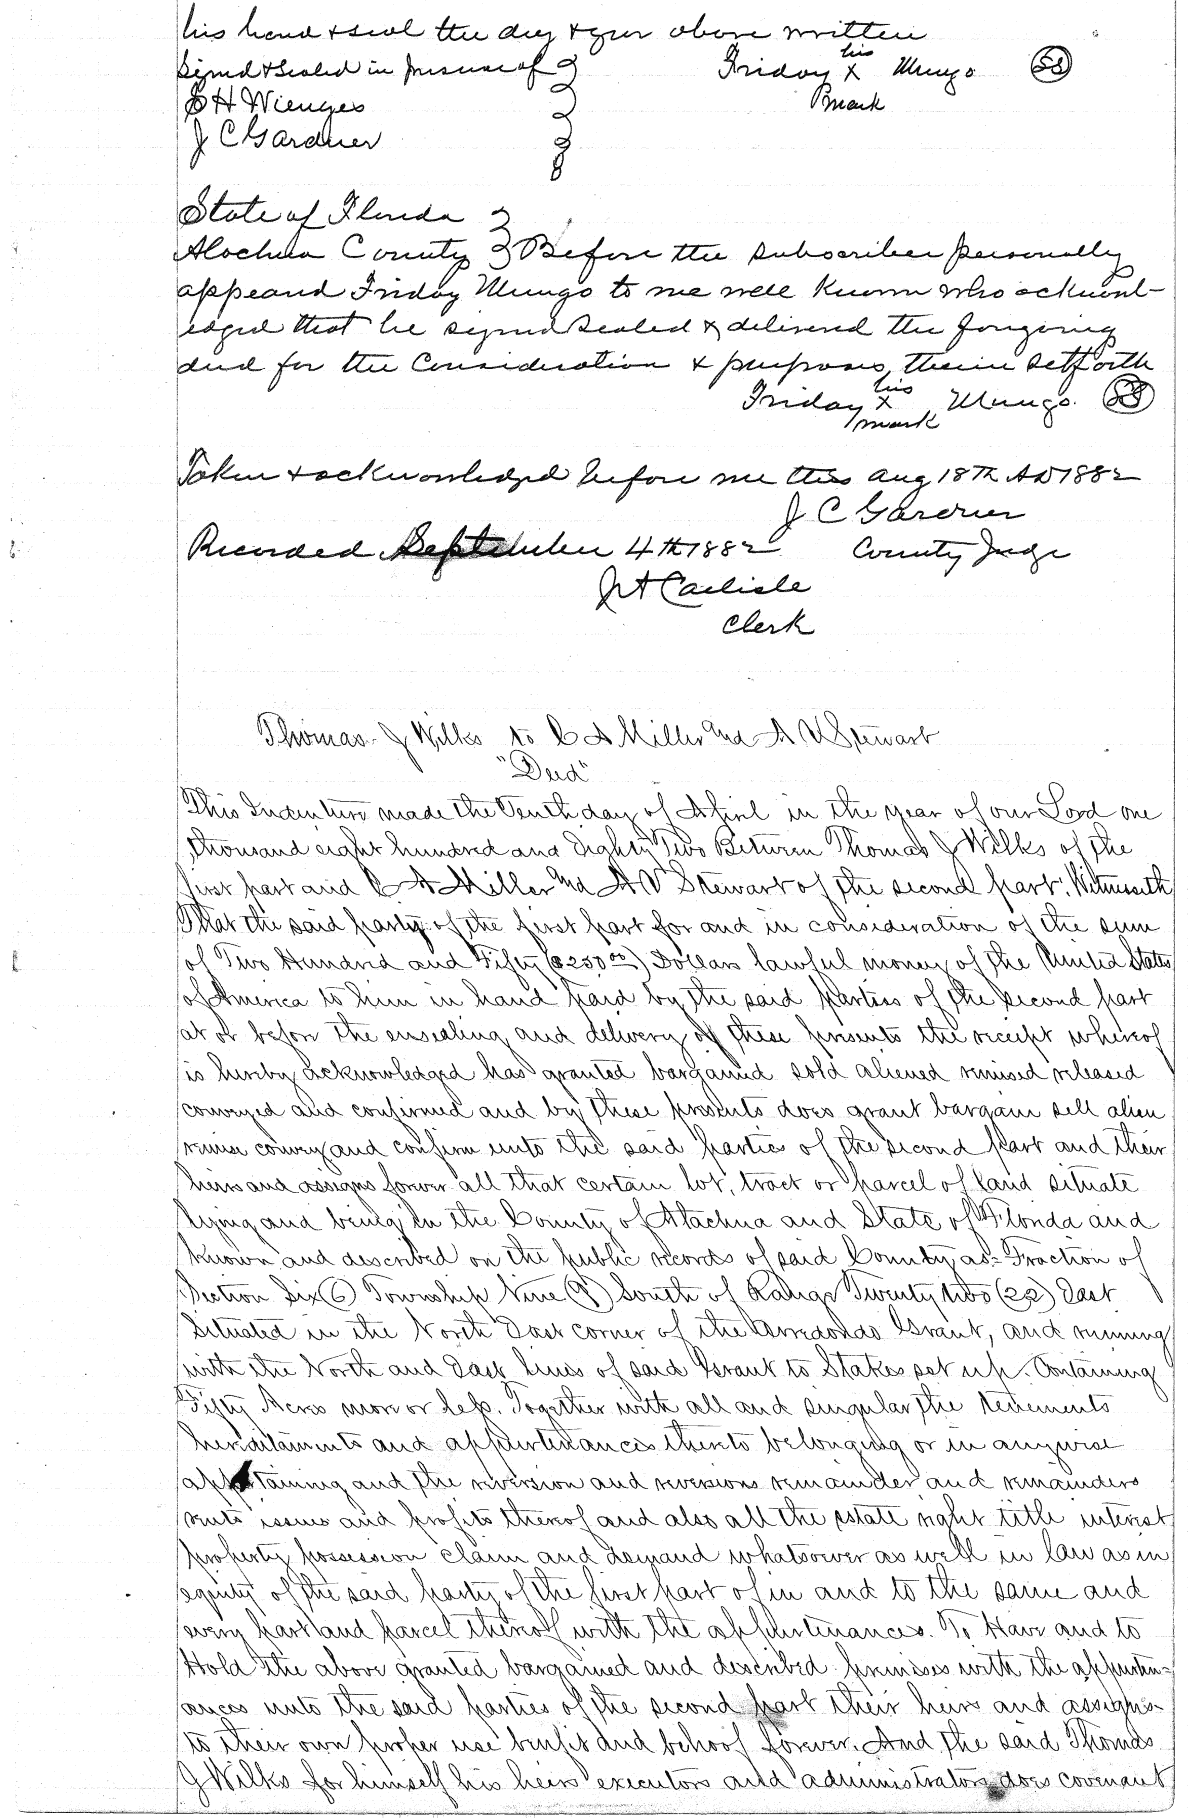 his hand & seal the day & year above written
Signed & Sealed in presence of
his
Friday X Mungo SS
mark
S H Wienges
J C Gardner
State of Florida
Alachua County Before the subscriber personally
appeared Friday Mungo to me well known who acknowl-
edged that he signed sealed & delivered the foregoing
deed for the Consideration & purposes therein setforth
his
Friday X Mungo. SS
mark
Taken & acknowledged before me this Aug 18th AD 1882
J C Gardner
Recorded September 4th 1882 County Judge
J A Carlisle
Clerk
Thomas J Wilks to C A Miller and A V Stewart
"Deed"
This Indenture made the Tenth day of April in the year of our Lord one
thousand eight hundred and Eighty Two Between Thomas J Wilks of the
first part and C A Miller and A V Stewart of the second part, Witnesseth
That the said party of the first part for and in consideration of the sum
of Two Hundred and Fifty ($250.00) Dollars lawful money of the United States
of America to him in hand paid by the said parties of the second part
at or before the ensealing and delivery of these presents the receipt whereof
is hereby acknowledged has granted bargained sold aliened remised released
conveyed and confirmed and by these presents does grant bargain sell alien
remise convey and confirm unto the said parties of the second part and their
heirs and assigns forever all that certain lot, tract or parcel of land situate
lying and being in the County of Alachua and State of Florida and
known and described on the public records of said County as:- Fraction of
Section Six (6) Township Nine (9) South of Range Twenty two (22) East
Situated in the North East corner of the Arredondo Grant, and running
with the North and East lines of said Grant to Stakes set up. Containing
Fifty Acres more or less. Together with all and singular the tenements
hereditaments and appurtenances thereto belonging or in anywise
appertaining and the reversion and reversions remainder and remainders
rents issues and profits thereof and also all the estate right title interest
property possession claim and demand whatsoever as well in law as in
equity of the said party of the first part of in and to the same and
every part and parcel thereof with the appurtenances. To Have and to
Hold the above granted bargained and described premises with the appurten=
ances unto the said parties of the second part their heirs and assigns
to their own proper use benefit and behoof forever. And the said Thomas
J Wilks for himself his heirs executors and administrators does covenant